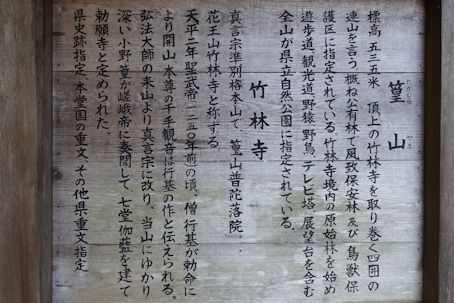 篁山
たかむら やま
標高 五三五米 頂上の竹林寺を取り巻く四囲の
連山を言う。概ね公有林て風致保安林及び鳥獣保
護区に指定されている。竹林寺境内の原始林を始め
遊歩道、観光道、野猿、野鳥、テレビ塔、展望台を含む
全山が県立自然公園に指定されている。
竹林寺
真言宗準別格本山で、篁山普陀落院
花王山竹林寺と称する。
天平二年聖武帝一二五〇年前の頃、僧行基が勅命に
より開山、本尊の千手観音は行基の作と伝えられる。
弘法大師の来山より真言宗に改り、当山にゆかり
深い小野篁が嵯峨帝に奏聞して、七堂伽藍を建て
勅願寺と定められた。
県史跡指定、本堂国の重文、その他県重文指定